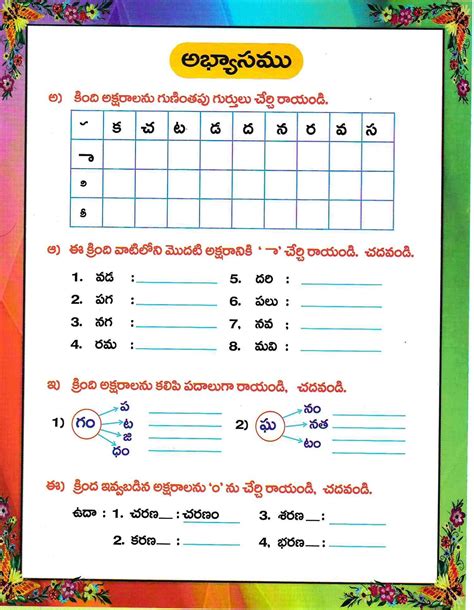 అభ్యాసము
అ) కింది అక్షరాలను గుణింతపు గుర్తులు చేర్చి రాయండి.
◌ క చ ట డ ద న ర వ స
ా
ి
ీ
ఆ) ఈ క్రింది వాటిలోని మొదటి అక్షరానికి ' ా' చేర్చి రాయండి. చదవండి.
1. వడ : 5. దరి :
2. పగ : 6. పలు :
3. నగ : 7, నవ :
4. రమ : 8. మవి :
ఇ) క్రింది అక్షరాలను కలిపి పదాలుగా రాయండి, చదవండి.
1) గం ప ట జి ధం
2) ఘ నం నత టం
ఈ) క్రింద ఇవ్వబడిన అక్షరాలను '0' ను చేర్చి రాయండి, చదవండి.
ఉదా : 1. చరణ__ : చరణం 3. శరణ__ :
2. కరణ__ : 4, భరణ__ :